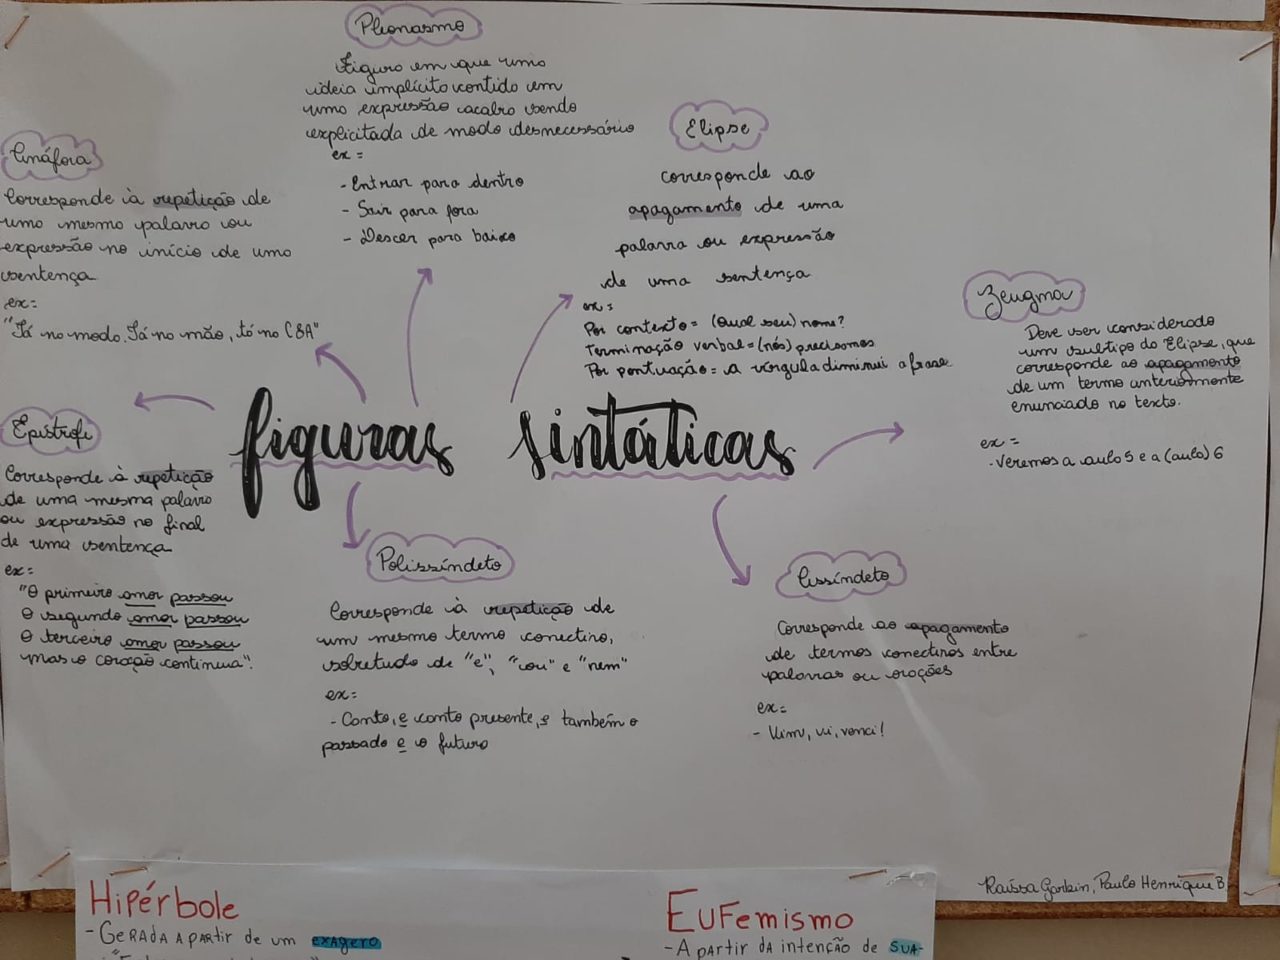 Pleonasmo
Figura em que uma
ideia implícita contida em
uma expressão acaba sendo
explicitada de modo desnecessário
ex =
- Entrar para dentro
- Sair para fora
- Descer para baixo
Elipse
corresponde ao
apagamento de uma
palavra ou expressão
de uma sentença
ex =
Por contexto = (Qual seu) nome?
Terminação verbal = (nós) precisamos
Por pontuação = a vírgula diminui a frase
Anáfora
Corresponde à repetição de
uma mesma palavra ou
expressão no início de uma
sentença
ex:
"Tá na moda. Tá na mão, tá na C&A"
Zeugma
Deve ser considerado
um subtipo do Elipse, que
corresponde ao apagamento
de um termo anteriormente
enunciado no texto.
ex =
- Veremos a aula 5 e a (aula) 6
figuras sintáticas
Epístrofe
Corresponde à repetição
de uma mesma palavra
ou expressão no final
de uma sentença
ex:
"O primeiro amor passou
O segundo amor passou
O terceiro amor passou
mas o coração continua".
Polissíndeto
Corresponde à repetição de
um mesmo termo conectivo,
sobretudo de "e", "ou" e "nem"
ex:
- Canto, e canto presente, e também o
passado e o futuro
Assíndeto
Corresponde ao apagamento
de termos conectivos entre
palavras ou orações
ex:
- Vim, vi, venci!
Raíssa Garbin, Paulo Henrique B
Hipérbole
- Gerada a partir de um exagero
Eufemismo
- A partir da intenção de sua-